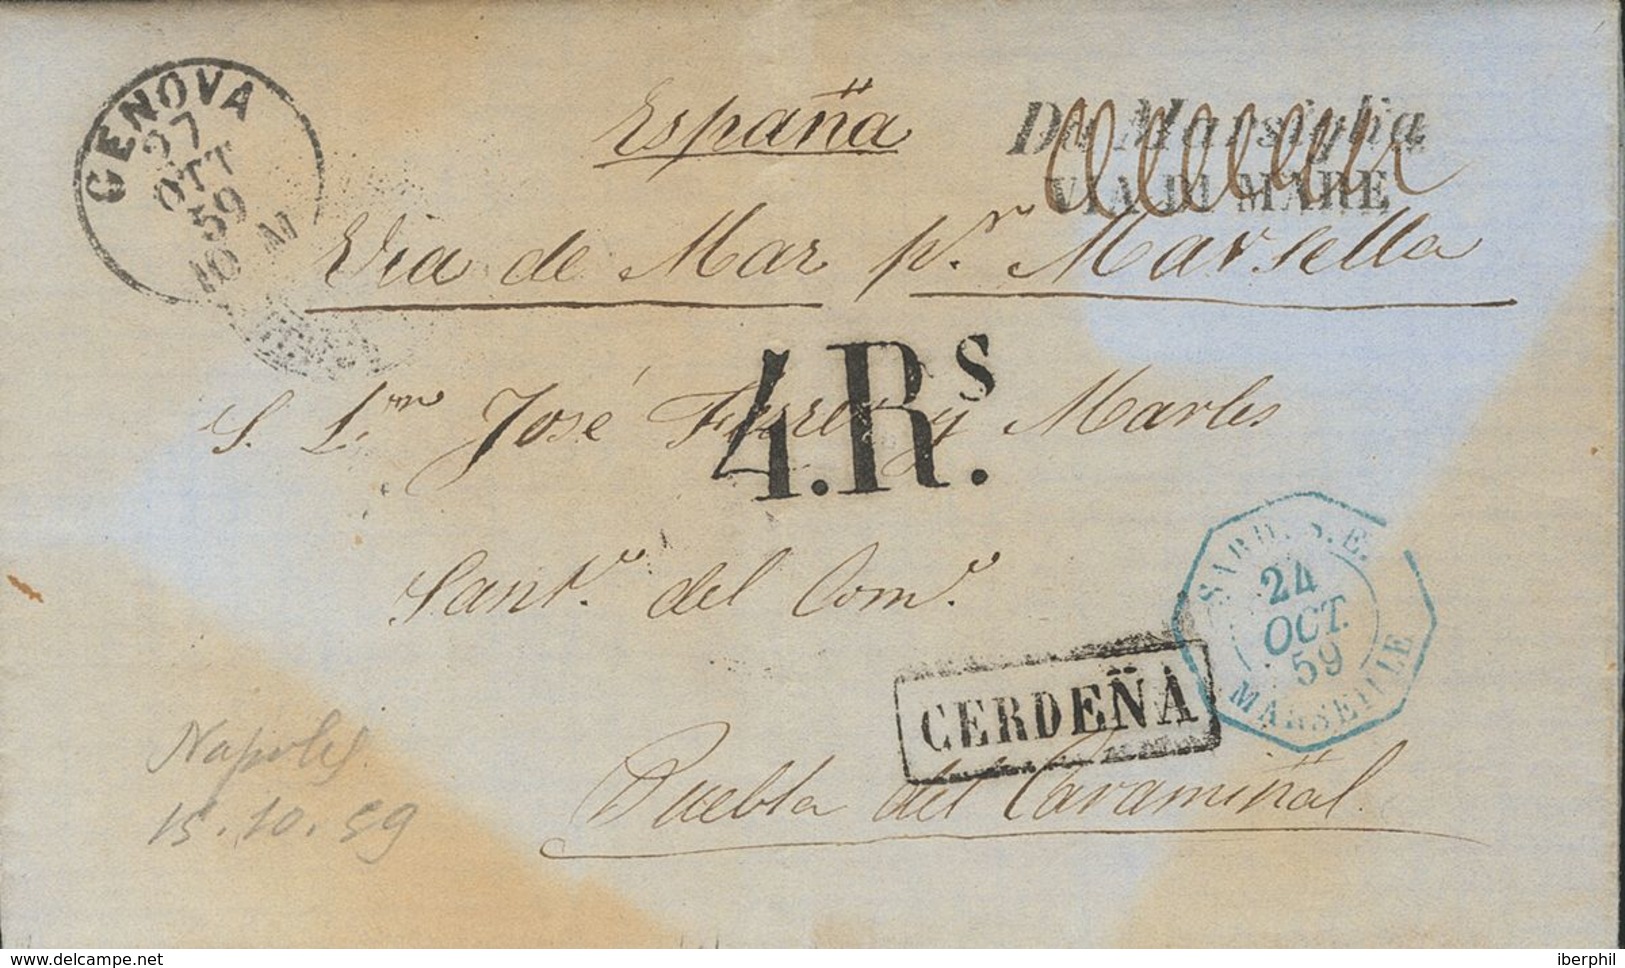 GENOVA
27
OTT
59
10 M
España
Da Marsiglia
VIA DI MARE
Via de Mar pr. Marsella
4.Rs.
S. Dn José Ferrer y Marles
Sant.o del Com.o
SARD. S.E.
24
OCT.
59
MARSEILLE
CERDEÑA
Puebla del Caramiñal
Napoles
15.10.59
www.delcampe.net
iberphil